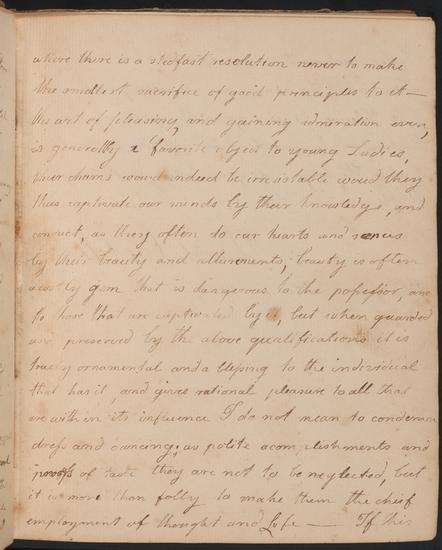 where there is a stedfast resolution never to make
the smallest sacrifice of good principles to it —
the art of pleasing, and gaining admiration even,
is generally a favorite object to young Ladies,
their charms would indeed be irresistable would they
thus captivate our minds by their knowledge, and
conduct, as they often do our hearts and senses
by their beauty and allurements; beauty is often
a costly gem that is dangerous to the possessor, and
to those that are captivated by it, but when guarded
and preserved by the above qualifications it is
truly ornamental and a blessing to the individual
that has it, and gives rational pleasure to all that
are within its influence I do not mean to condemn
dress and dancing; as polite acomplishments and
proofs of taste they are not to be neglected, but
it is more than folly to make them the chief
employment of thought and Life — If this